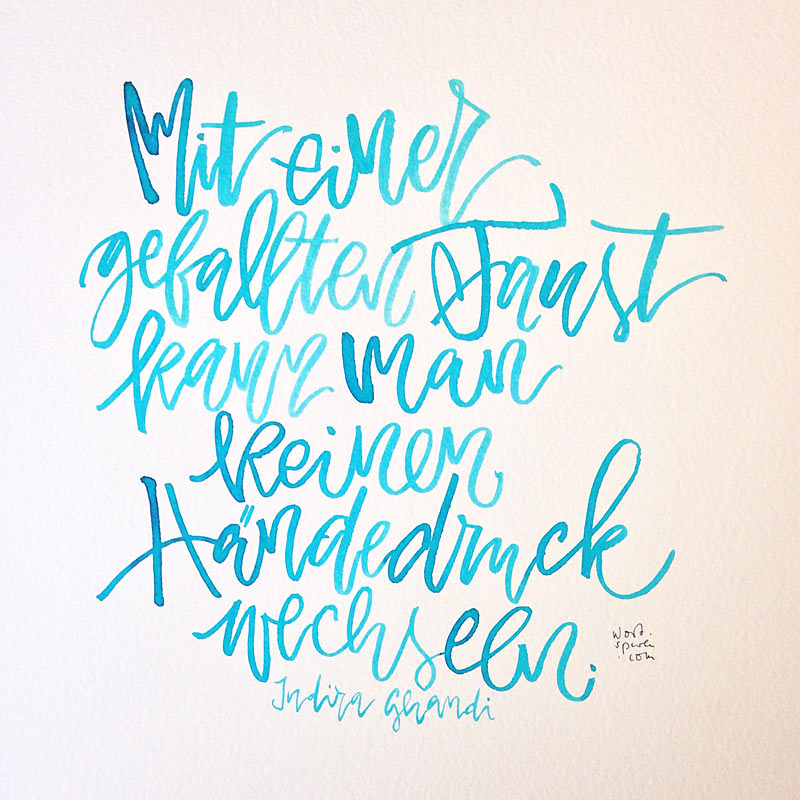 Mit einer
geballten Faust
kann man
keinen
Händedruck
wechseln.
Indira Ghandi
wort.
spark
.com